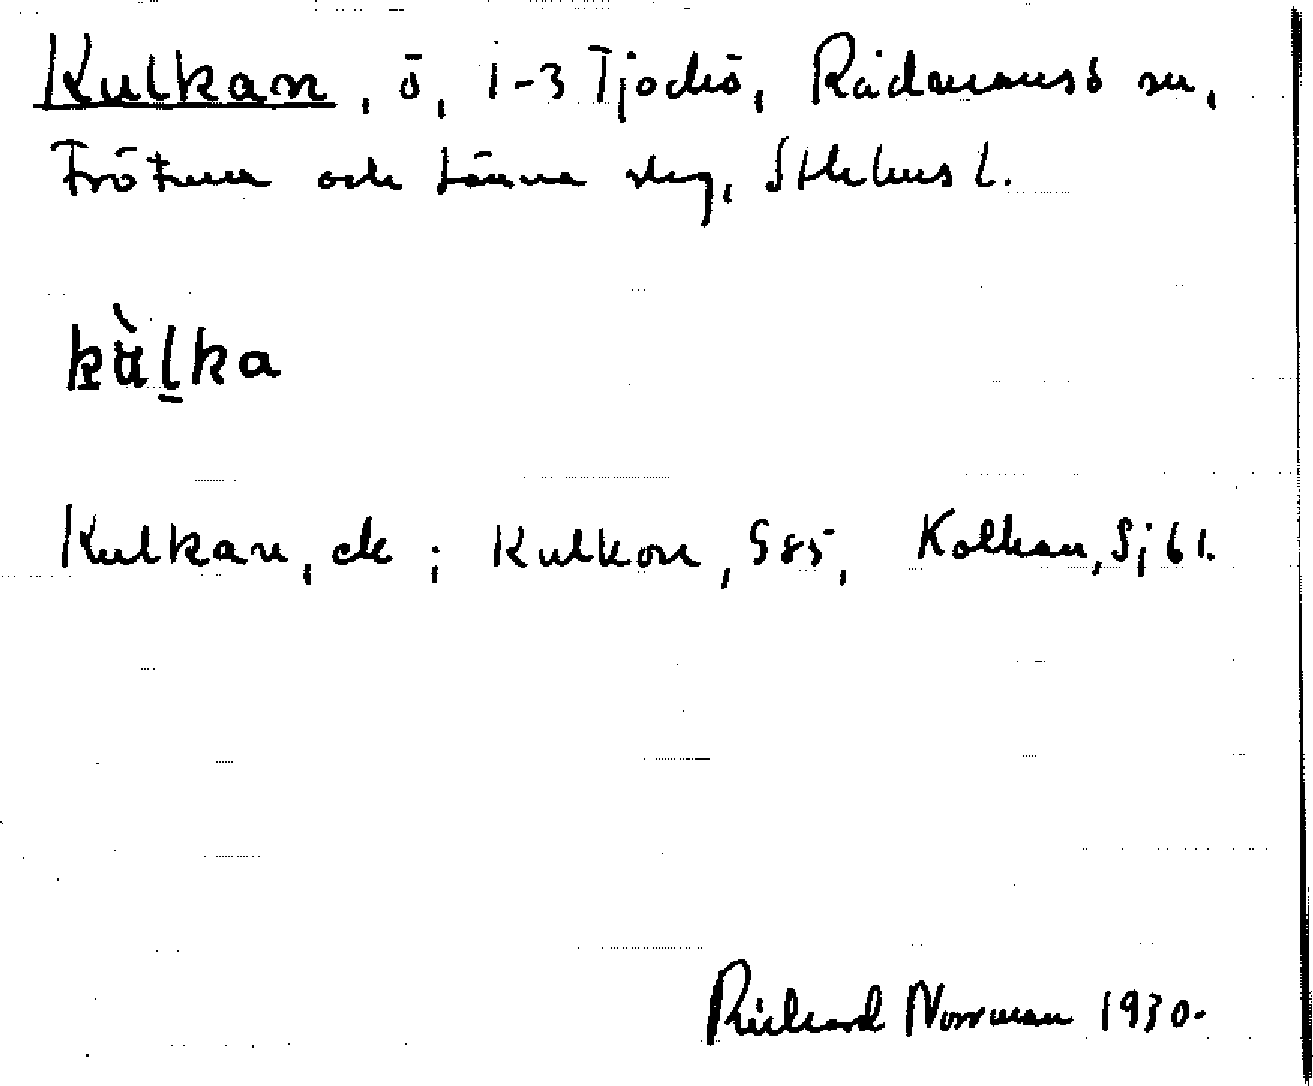 Kulkan, ö, 1-3 Tjockö, Rådmansö sn,
Frötuna och Länna skg, Sthlms l.
kùl̠ka
Kulkan, ek; Kulkon, S85, Kolkan, Sj61.
Richard Norrman 1930.